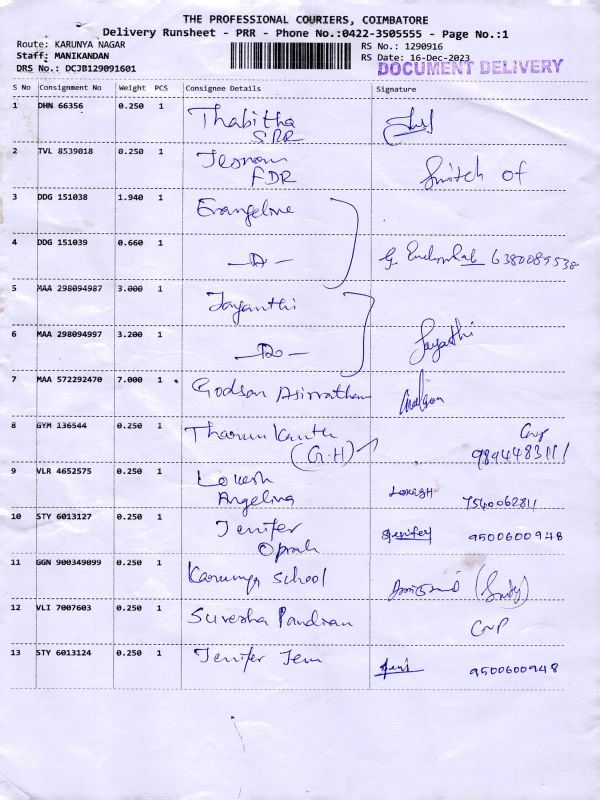 THE PROFESSIONAL COURIERS, COIMBATORE
Delivery Runsheet - PRR - Phone No.:0422-3505555 - Page No.:1
Route: KARUNYA NAGAR
Staff: MANIKANDAN
DRS No.: DCJB129091601
RS No.: 1290916
RS Date: 16-Dec-2023
DOCUMENT DELIVERY
S No Consignment No Weight PCS Consignee Details Signature
1 DHN 66356 0.250 1 Thabitha
SRR
2 TVL 8539018 0.250 1 Switch of
FDR
3 DDG 151038 1.940 1 Evangeline
4 DDG 151039 0.660 1 -D- 6380089538
5 MAA 298094987 3.000 1 Jayanthi
6 MAA 298094997 3.200 1 -Do- Jayathi
7 MAA 572292470 7.000 1 Godson Asirvatham
8 GYM 136544 0.250 1 Tharun Kanth
(G.H) 9894483111
9 VLR 4652575 0.250 1 Lokesh LOKESH 7540062811
Angelina
10 STY 6013127 0.250 1 Jenifer Jenifer 9500600948
Oprah
11 GGN 900349099 0.250 1 Karunya School
12 VLI 7007603 0.250 1 Suresha Pandian CNP
13 STY 6013124 0.250 1 Jenifer Jem Jeni 9500600948